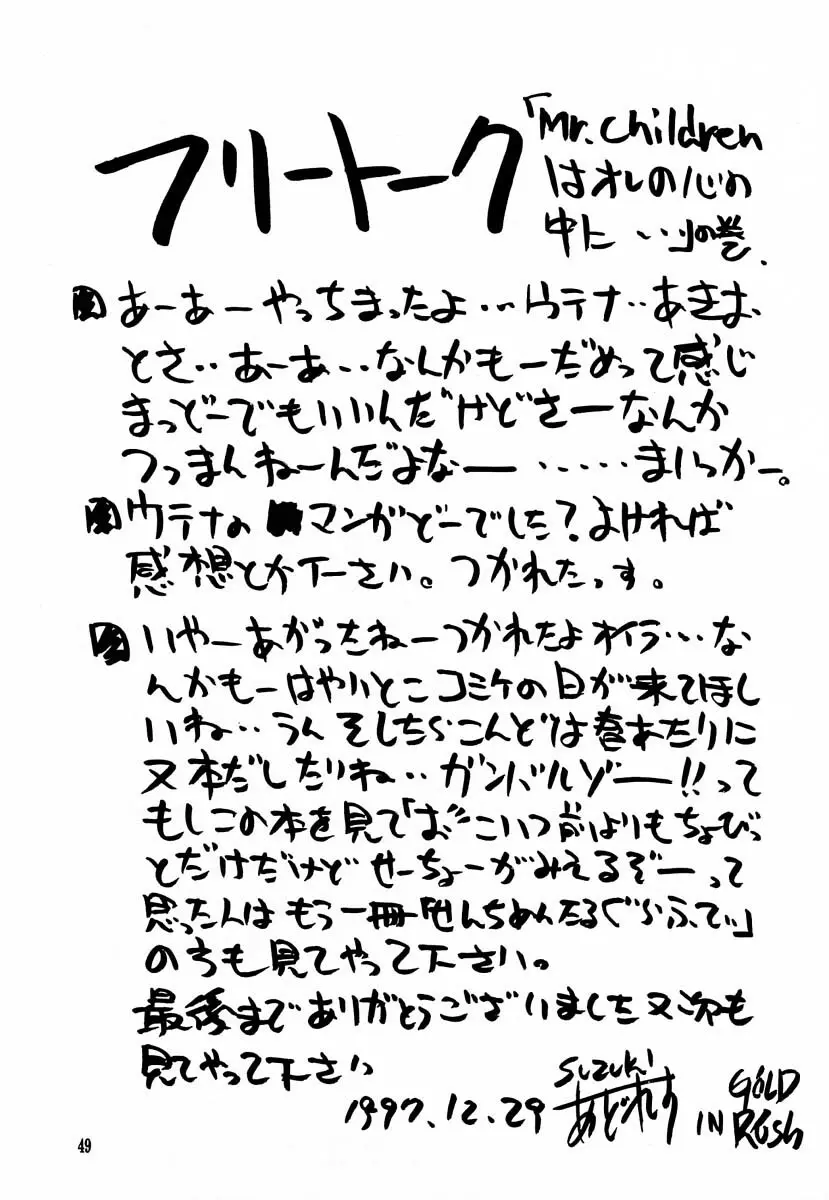 フリートーク
「Mr.Children
はオレの心の
中に・・・」の巻.
あーあーやっちまったよ・・・ウテナ・・あきお
とさ・・あーあ・・・なんかもーだめって感じ
まっどーでもいいんだけどさーなんか
つっまんねーんだよなー・・・・・まいっかー。
ウテナの マンガどーでした?よければ
感想とか下さい。つかれたっす。
いやーあがったねーつかれたよオイラ・・・な
んかもーはやいとこコミケの日が来てほし
いね・・うん そしたらこんどは春あたりに
又本だしたいね・・ガンバルゾー!!って
もしこの本を見て「おおこいつ前よりもちょびっ
とだけだけど せーちょーがみえるぞーって
思った人は もう一冊「せんちめんたるぐらふてぃ」
のちも見てやって下さい。
最後までありがとうございました又次も
見てやって下さい
1997.12.29
SUZUKI
あどれす
GOLD
IN RUSh
49